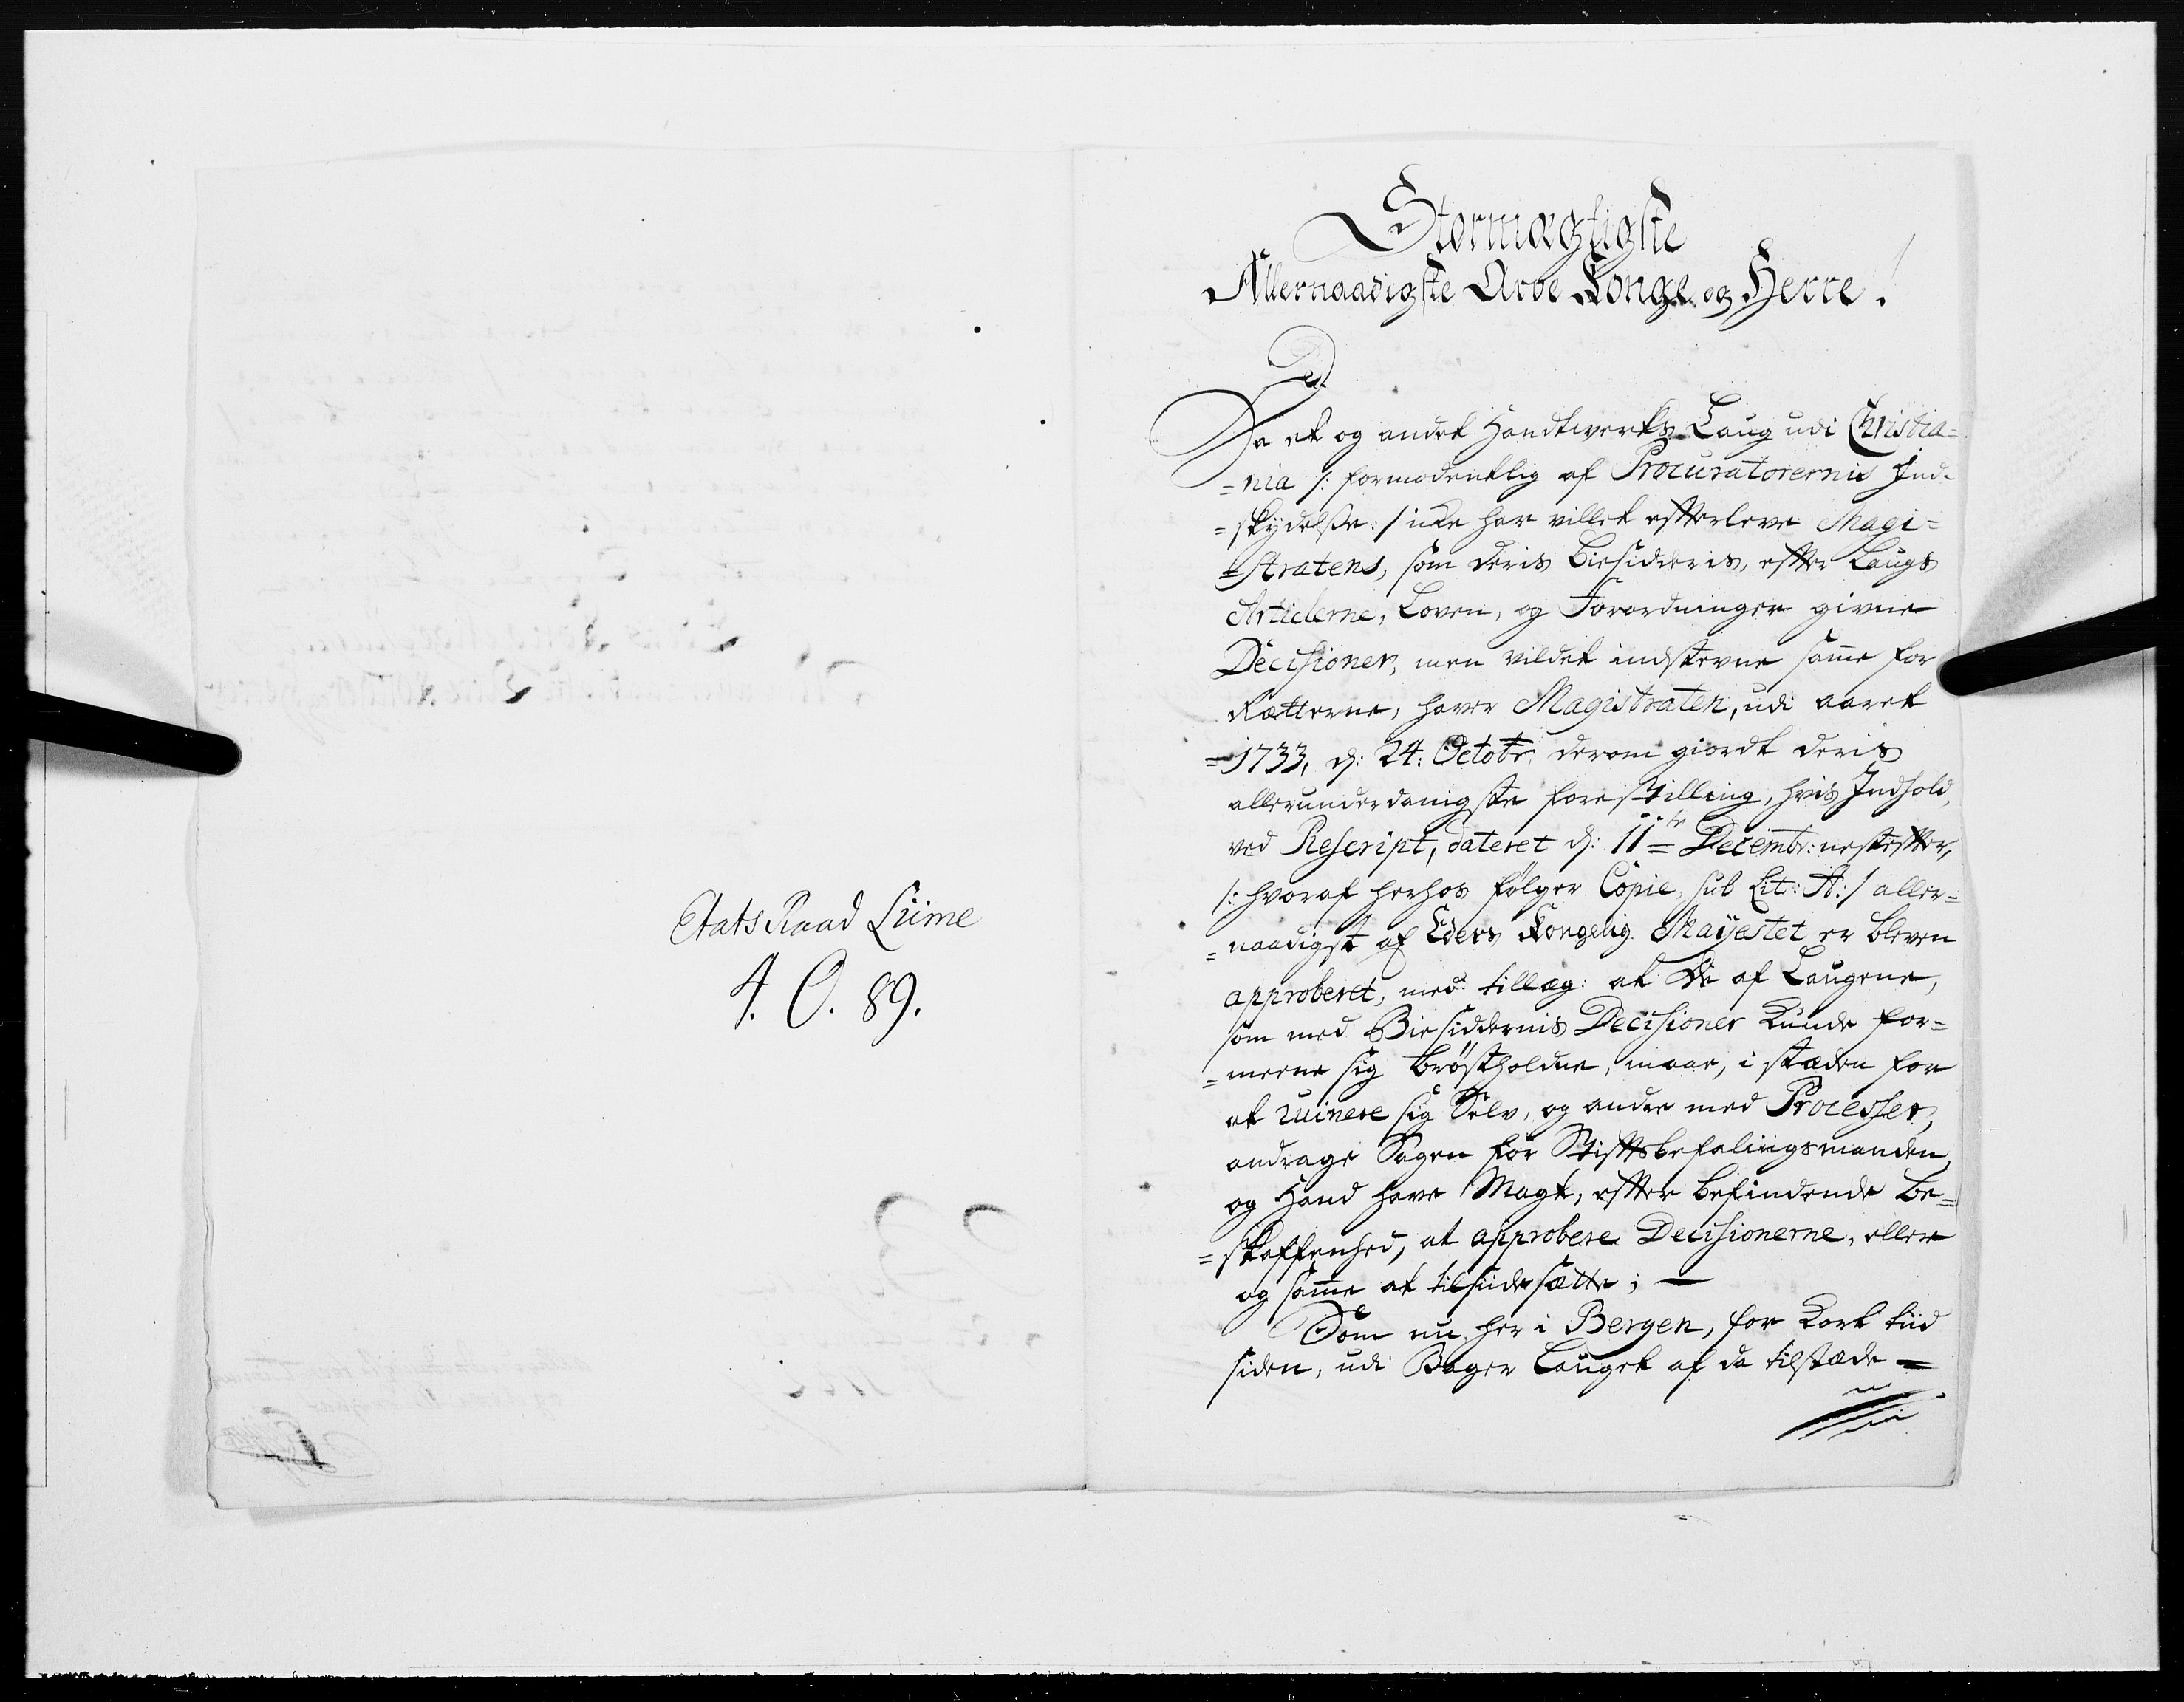 Etats Raad Lüme
4. O. 89.
Stormægtigste
Allernaadigste Arve Konge og Herre!
Da et og andet Handtwerks Laug udi Christia=
=nia /: formodentlig af Procuratorernis Ind=
=skydelsse :/ icke har villet effterleve Magi=
=stratens, som deris Biesidderis, effter Laugs
Articlerne, Loven, og Forordninger givne
Decisioner, men vildet indstevne samme for
Rætterne, haver Magistraten, udi aaret
=1733, d: 24: Octobr: derom giordt deris
allerunderdanigste forestilling, hvis Indhold,
ved Rescript, dateret d: 11te Decembr: nestefter,
/: hvoraf herhos følger Copie, sub Lit: A: / aller=
=naadigst af Eders Kongelig Mayestet er bleven
approberet, med tillæg: at De af Laugene,
som med Biesiddernis Decisioner kunde for=
=meene sig brøstholdne, maae, i stæden for
at ruinere sig Selv, og andre med Processer,
andrage Sagen for Stifftsbefalingsmanden,
og Hand have Magt, effter befindende Be=
=skaffenhed, at approbere Decisionerne, eller
og samme at tilsiidesætte; —
Som nu her i Bergen, for kort tiid
siden, udi Bager Lauget af da tilstæde =